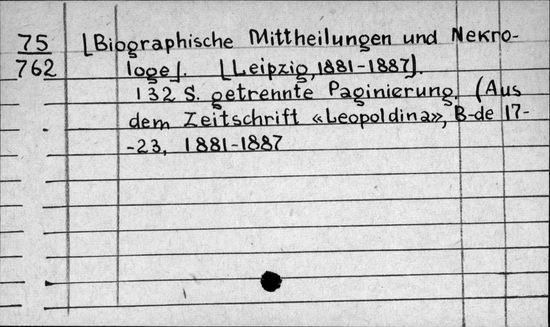 75 [Biographische Mittheilungen und Nekro-
762 loge]. [Leipzig, 1881-1887].
132 S. getrennte Paginierung. (Aus
dem Zeitschrift «Leopoldina», B-de 17-
-23, 1881-1887